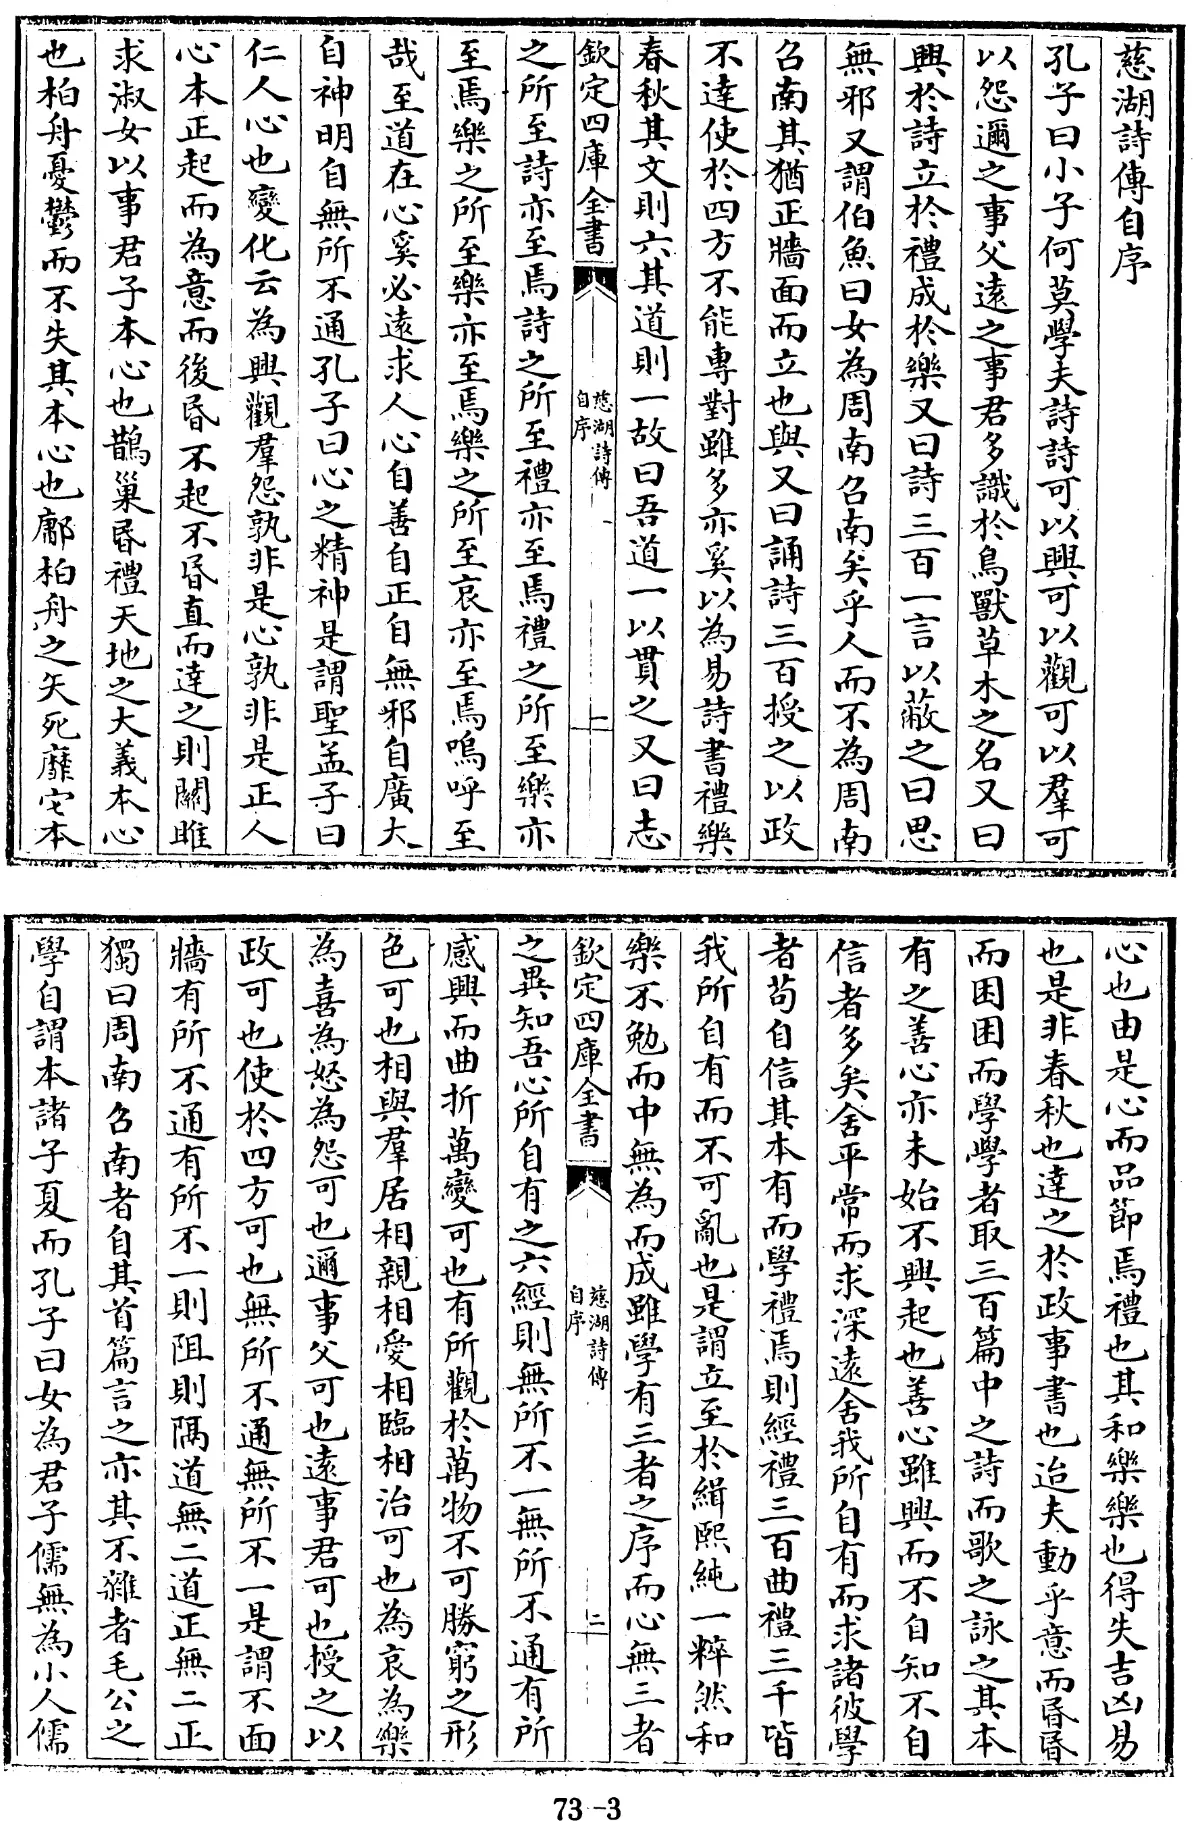 慈湖詩傳自序
孔子曰小子何莫學夫詩詩可以興可以觀可以羣可
以怨邇之事父遠之事君多識於鳥獸草木之名又曰
興於詩立於禮成於樂又曰詩三百一言以蔽之曰思
無邪又謂伯魚曰女為周南召南矣乎人而不為周南
召南其猶正牆面而立也與又曰誦詩三百授之以政
不達使於四方不能專對雖多亦奚以為易詩書禮樂
春秋其文則六其道則一故曰吾道一以貫之又曰志
欽定四庫全書
慈湖詩傳
自序
一
之所至詩亦至焉詩之所至禮亦至焉禮之所至樂亦
至焉樂之所至樂亦至焉樂之所至哀亦至焉嗚呼至
哉至道在心奚必遠求人心自善自正自無邪自廣大
自神明自無所不通孔子曰心之精神是謂聖孟子曰
仁人心也變化云為興觀羣怨孰非是心孰非是正人
心本正起而為意而後昏不起不昏直而達之則關雎
求淑女以事君子本心也鵲巢昏禮天地之大義本心
也柏舟憂鬱而不失其本心也鄘柏舟之矢死靡它本
心也由是心而品節焉禮也其和樂樂也得失吉凶易
也是非春秋也達之於政事書也迨夫動乎意而昏昏
而困困而學學者取三百篇中之詩而歌之詠之其本
有之善心亦未始不興起也善心雖興而不自知不自
信者多矣舍平常而求深遠舍我所自有而求諸彼學
者苟自信其本有而學禮焉則經禮三百曲禮三千皆
我所自有而不可亂也是謂立至於緝熙純一粹然和
樂不勉而中無為而成雖學有三者之序而心無三者
欽定四庫全書
慈湖詩傳
自序
二
之異知吾心所自有之六經則無所不一無所不通有所
感興而曲折萬變可也有所觀於萬物不可勝窮之形
色可也相與羣居相親相愛相臨相治可也為哀為樂
為喜為怒為怨可也邇事父可也遠事君可也授之以
政可也使於四方可也無所不通無所不一是謂不面
牆有所不通有所不一則阻則隔道無二道正無二正
獨曰周南召南者自其首篇言之亦其不雜者毛公之
學自謂本諸子夏而孔子曰女為君子儒無為小人儒
73-3